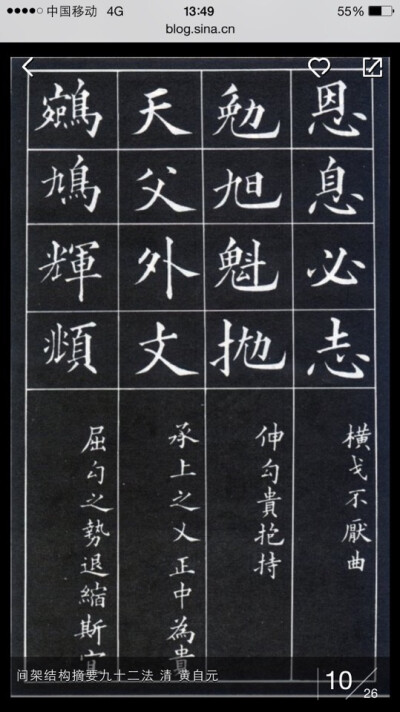 中国移动 4G 13:49 55%
blog.sina.cn
恩息必志
横戈不厭曲
勉旭魁抛
伸勾貴抱持
天父外丈
承上之乂正中為貴
鵷鳩輝頫
屈勾之勢退縮斯宜
间架结构摘要九十二法 清 黄自元
10/26